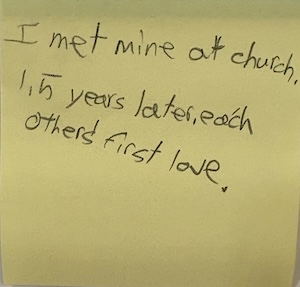 I met mine at church.
1,5 years later, each
others' first love.